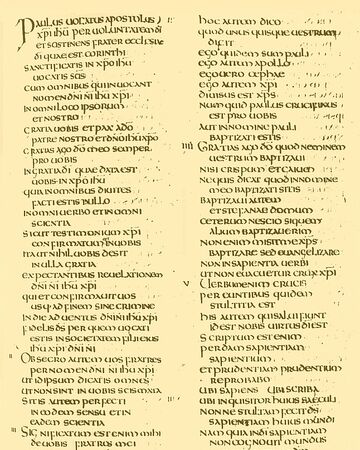 PAULUS UOCATUS APOSTOLUS
XPI IHU PER UOLUNTATEM DI
ET SOSTENES FRATER ECCLESIAE
DI QUAE EST CORINTHI
SANCTIFICATIS IN XPO IHU
UOCATIS SCIS
CUM OMNIBUS QUI INUOCANT
NOMEN DNI NI IHU XPI
IN OMNI LOCO IPSORUM
ET NOSTRO
GRATIA UOBIS ET PAX A DO
PATRE NOSTRO ET DNO IHU XPO
GRATIAS AGO DO MEO SEMPER
PRO UOBIS
IN GRATIA DI QUAE DATA EST
UOBIS IN XPO IHU
QUIA IN OMNIBUS DIUITES
FACTI ESTIS IN ILLO
IN OMNI UERBO ET IN OMNI
SCIENTIA
SICUT TESTIMONIUM XPI
CONFIRMATUM EST IN UOBIS
ITA UT NIHIL UOBIS DESIT
IN ULLA GRATIA
EXPECTANTIBUS REUELATIONEM
DNI NI IHU XPI
QUI ET CONFIRMAUIT UOS
USQ AD FINEM SINE CRIMINE
IN DIE ADUENTUS DNI NI IHU XPI
FIDELIS DS PER QUEM UOCATI
ESTIS IN SOCIETATEM FILII EIUS
IHU XPI DNI NI
II OBSECRO AUTEM UOS FRATRES
PER NOMEN DNI NI IHU XPI
UT ID IPSUM DICATIS OMNES
UT NON SINT IN UOBIS SCISMATA
SITIS AUTEM PERFECTI
IN EODEM SENSU ET IN
EADEM SCIENTIA
III SIGNIFICATUM EST ENIM MIHI
DE UOBIS FRATRES MEI
HOC AUTEM DICO
QUOD UNUS QUISQUE UESTRUM
DICIT
EGO QUIDEM SUM PAULI
EGO AUTEM APOLLO
EGO UERO CEPHAE
EGO AUTEM XPI
DIUISUS EST XPS
NUMQUID PAULUS CRUCIFIXUS
EST PRO UOBIS
AUT IN NOMINE PAULI
BAPTIZATI ESTIS
IIII GRATIAS AGO DO QUOD NEMINEM
UESTRUM BAPTIZAUI
NISI CRISPUM ET GAIUM
NE QUIS DICAT QUOD IN NOMINE
MEO BAPTIZATI SITIS
BAPTIZAUI AUTEM
ET STEFANAE DOMUM
CETERUM NESCIO SI QUEM
ALIUM BAPTIZAUERIM
NON ENIM MISIT ME XPS
BAPTIZARE SED EUANGELIZARE
NON IN SAPIENTIA UERBI
UT NON EUACUETUR CRUX XPI
V UERBUM ENIM CRUCIS
PEREUNTIBUS QUIDEM
STULTITIA EST
HIS AUTEM QUI SALUI FIUNT
ID EST NOBIS UIRTUS DI EST
SCRIPTUM EST ENIM
PERDAM SAPIENTIAM
SAPIENTIUM
ET PRUDENTIAM PRUDENTIUM
REPROBABO
UBI SAPIENS UBI SCRIBA
UBI INQUISITOR HUIUS SAECULI
NONNE STULTAM FECIT DS
SAPIENTIAM HUIUS MUNDI
NAM QUIA IN DI SAPIENTIAM
NON COGNOUIT MUNDUS